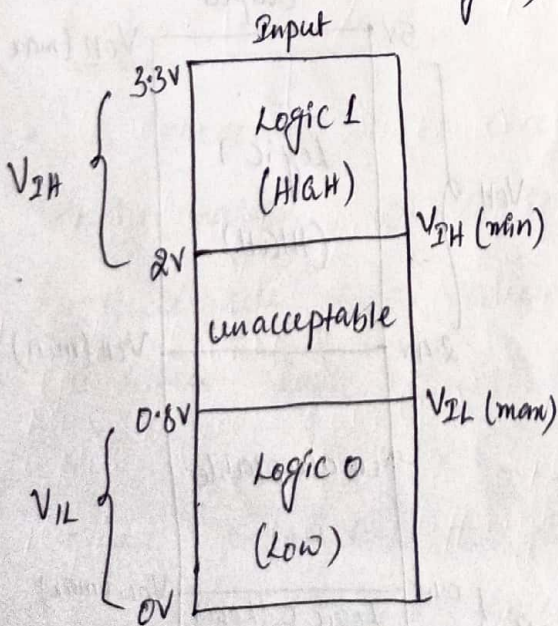 Input
3.3V
Logic 1
(HIGH)
VIH
VIH (min)
2V
unacceptable
0.8V
VIL (max)
Logic 0
VIL
(LOW)
0V